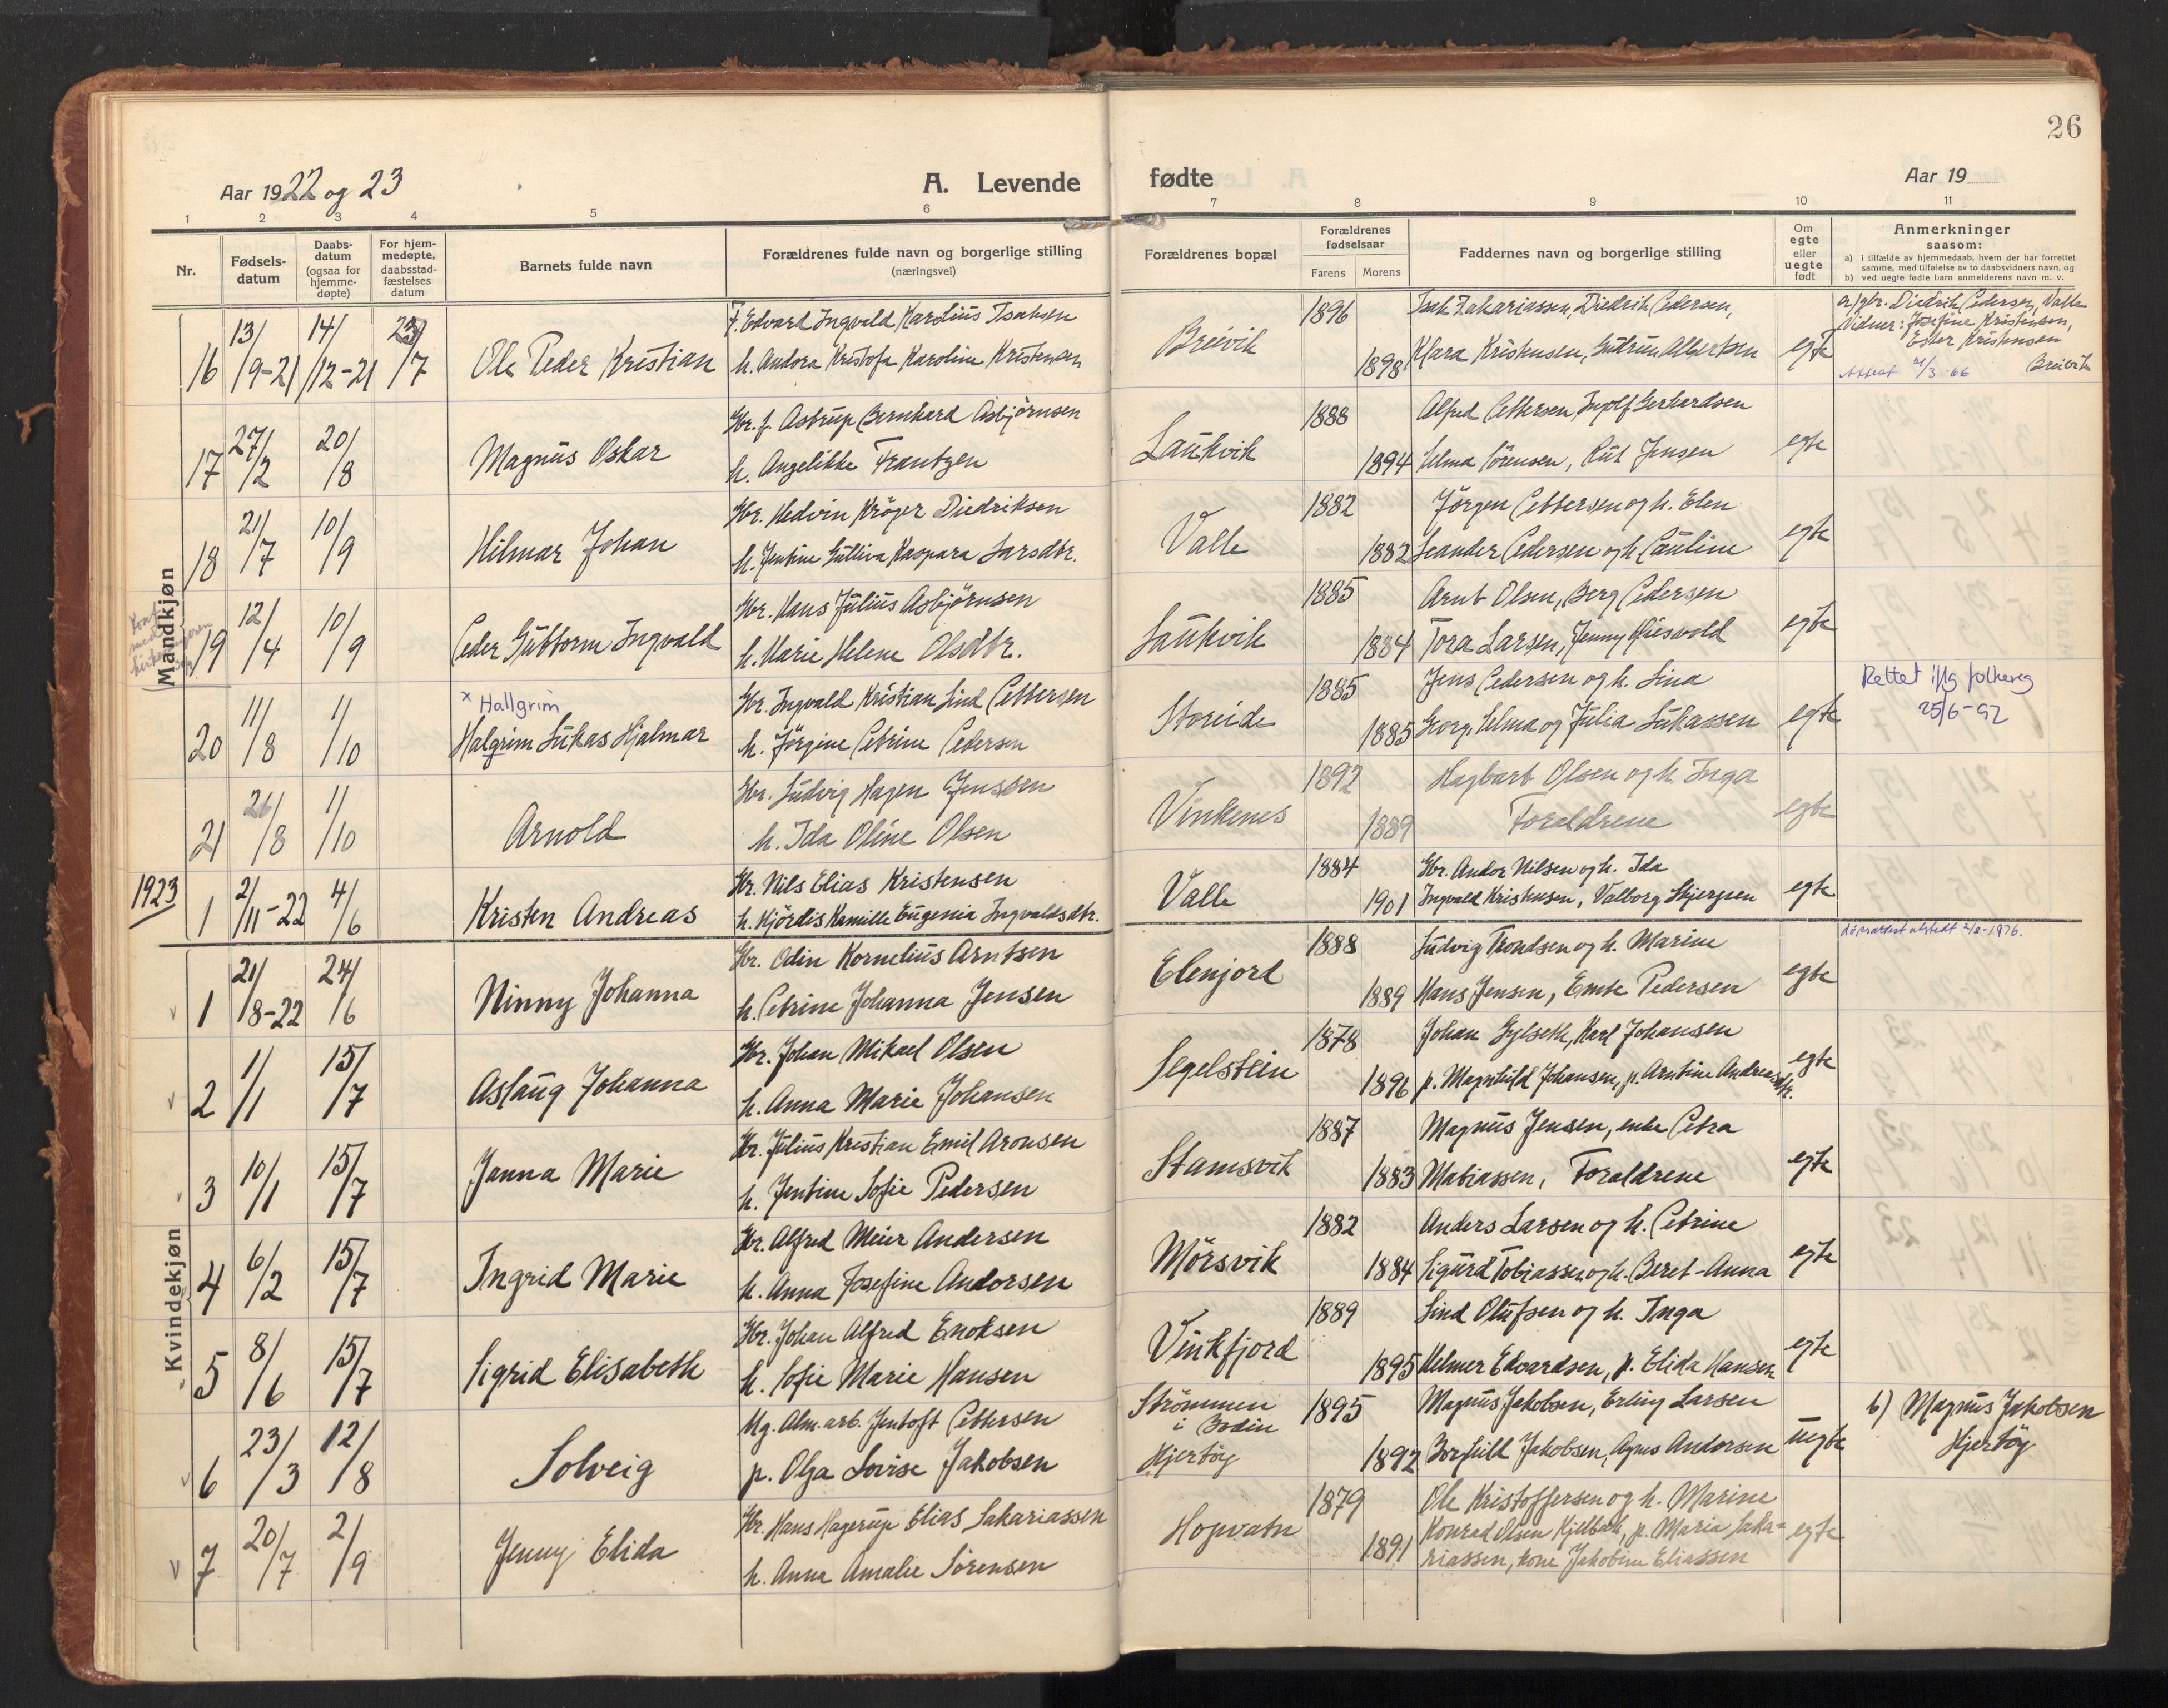 26
Aar 1922 og 23
A. Levende fødte
Aar 19
1 2 3 4 5 6 7 8 9 10 11
Nr.
Fødsels-datum
Daabs-datum (ogsaa for hjemme-døpte)
For hjem-medøpte, daabsstad-fæstelses datum
Barnets fulde navn
Forældrenes fulde navn og borgerlige stilling (næringsvei)
Forældrenes bopæl
Forældrenes fødselsaar
Farens Morens
Faddernes navn og borgerlige stilling
Om egte eller uegte født
Anmerkninger saasom:
a) i tilfælde av hjemmedaab, hvem der har forrettet samme, med tilføielse av to daabsvidners navn, og
b) ved uegte fødte barn anmelderens navn m. v.
Mandkjøn
16 13/9-21 14/12-21 23/7 Ole Peder Kristian
F. Edvard Ingvald Karolius Isaksen
h. Andora Kristofa Karoline Kristensen
Breivik 1896 1898
Isak Zakariassen, Diedrik Pedersen,
Klara Kristensen, Gudrun Albertsen
egte
Diedrik Pedersen, Valle
Vidner: Josefine Kristensen,
Ester Kristensen
Breivik
Attest 21/3-66
17 27/2 20/8 Magnus Oskar
Gbr. f. Astrup Bernhard Asbjörnsen
h. Angelikke Frantzen
Laukvik 1888 1894
Alfred Pettersen, Ingolf Gerhardsen
Selma Sörensen, Rut Jensen
egte
18 21/7 10/9 Hilmar Johan
Gbr. Hedvin Kröger Diedriksen
h. Jentine Gulliva Kaspara Larsdtr.
Valle 1882 1882
Jörgen Pettersen og h. Elen
Leander Pedersen og h. Pauline
egte
19 12/4 10/9 Peder Guttorm Ingvald
Gbr. Hans Julius Asbjörnsen
h. Marie Helene Olsdtr.
Laukvik 1885 1884
Arnt Olsen, Berg Pedersen
Tora Larsen, Jenny
egte
20 11/8 1/10 x Hallgrim
Halgrim Lukas Hjalmar
Gbr. Ingvald Kristian Lind Pettersen
h. Jörgine Petrine Pedersen
Storeide 1885 1885
Jens Pedersen og h. Lina
Georg, Selma og Julia Lukassen
egte
Rettet iflg folkereg
25/6-92
21 26/8 1/10 Arnold
Gbr. Ludvig Hagen Jenssen
h. Ida Oline Olsen
Vinkenes 1892 1889
Hagbart Olsen og h. Inga
Forældrene
egte
1923
1 2/11-22 4/6 Kristen Andreas
Gbr. Nils Elias Kristensen
h. Hjördis Kamille Eugenia Ingvaldsdtr.
Valle 1884 1901
Gbr. Andor Nilsen og h. Ida
Ingvald Kristensen, Valborg Skjergsen
egte
Kvindekjøn
1 21/8-22 24/6 Ninny Johanna
Gbr. Odin Kornelius Arntsen
h. Petrine Johanna Jensen
Elenjord 1888 1889
Ludvig Trondsen og h. Marine
Hans Jensen, Emte Pedersen
egte
dåpsattest utstedt 2/2-1976.
2 1/1 15/7 Aslaug Johanna
Gbr. Johan Mikael Olsen
h. Anna Marie Johansen
Segelstein 1878 1896
Johan Gylseth, Karl Johansen
p. Magnhild Johansen, p. Arntine Andreasdtr.
egte
3 10/1 15/7 Janna Marie
Gbr. Julius Kristian Emil Aronsen
h. Jentine Sofie Pedersen
Stamsvik 1887 1883
Magnus Jensen, enke Petra
Matiassen, Forældrene
egte
4 6/2 15/7 Ingrid Marie
Gbr. Alfred Meier Andersen
h. Anna Josefine Andorsen
Mörsvik 1882 1884
Anders Larsen og h. Petrine
Sigurd Tobiassen og h. Beret-Anna
egte
5 8/6 15/7 Sigrid Elisabeth
Gbr. Johan Alfred Enoksen
h. Sofie Marie Hansen
Vinkfjord 1889 1895
Lind Olufsen og h. Inga
Helmer Edvardsen, p. Elida Hansen
egte
6 23/3 12/8 Solveig
Ug. Alm. arb. Jentoft Pettersen
p. Olga Lovise Jakobsen
Strömmen i Bodin
Hjertöy
1895 1892
Magnus Jakobsen, Erling Larsen
Borghild Jakobsen, Agnes Andorsen
uegte
b) Magnus Jakobsen
Hjertöy
7 20/7 2/9 Jenny Elida
Gbr. Hans Hagerup Elias Sakariassen
h. Anna Amalie Sörensen
Hopvatn 1879 1891
Ole Kristoffersen og h. Marine
Konrad Olsen Kjelbotn, p. Maria Saka-
riassen, kone Jakobine Eliassen
egte